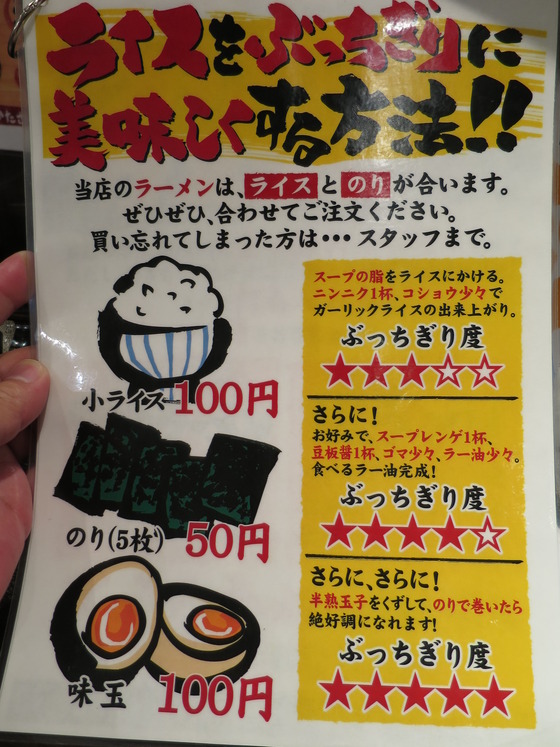 ライスをぶっちぎりに
美味しくする方法!!
当店のラーメンは、ライスとのりが合います。
ぜひぜひ、合わせてご注文ください。
買い忘れてしまった方は…スタッフまで。
小ライス100円
のり(5枚)50円
味玉100円
スープの脂をライスにかける。
ニンニク1杯、コショウ少々で
ガーリックライスの出来上がり。
ぶっちぎり度
★★★☆☆
さらに!
お好みで、スープレンゲ1杯、
豆板醤1杯、ゴマ少々、ラー油少々。
食べるラー油完成!
ぶっちぎり度
★★★★☆
さらに、さらに!
半熟玉子をくずして、のりで巻いたら
絶好調になれます!
ぶっちぎり度
★★★★★